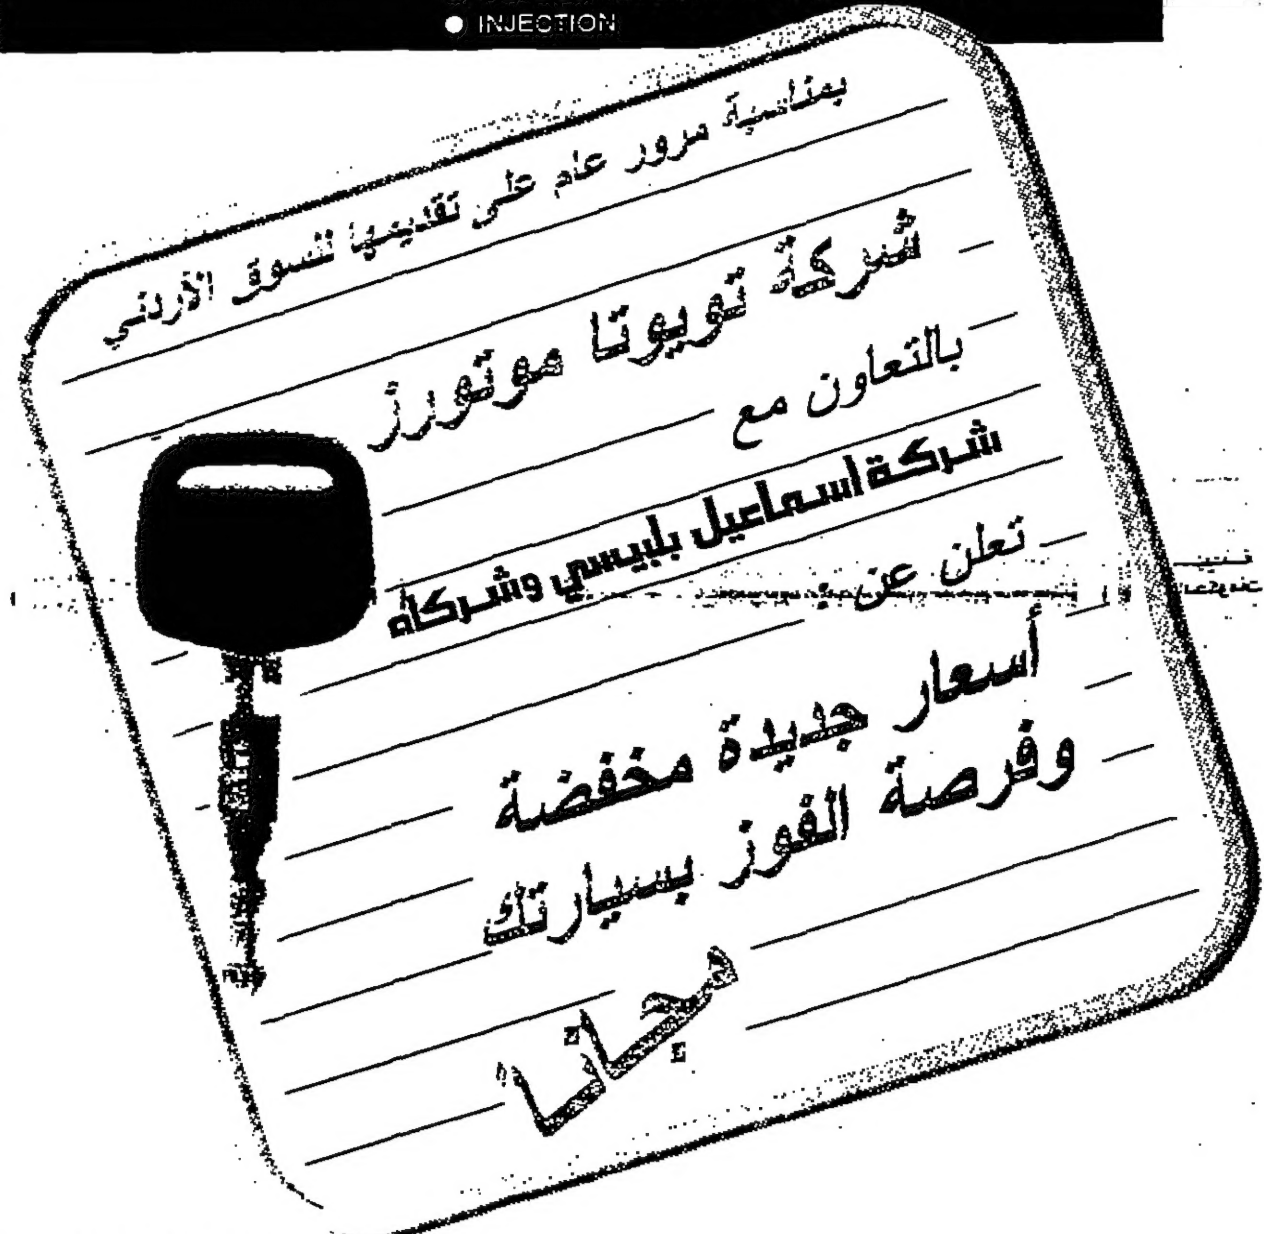 INJECTION
بمناسبة مرور عام على تقديمها للسوق الأردني
شركة تويوتا موتورز
بالتعاون مع
شركة اسماعيل بلبيسي وشركاه
تعلن عن
أسعار جديدة مخفضة
وفرصة الفوز بسيارتك
مجانا